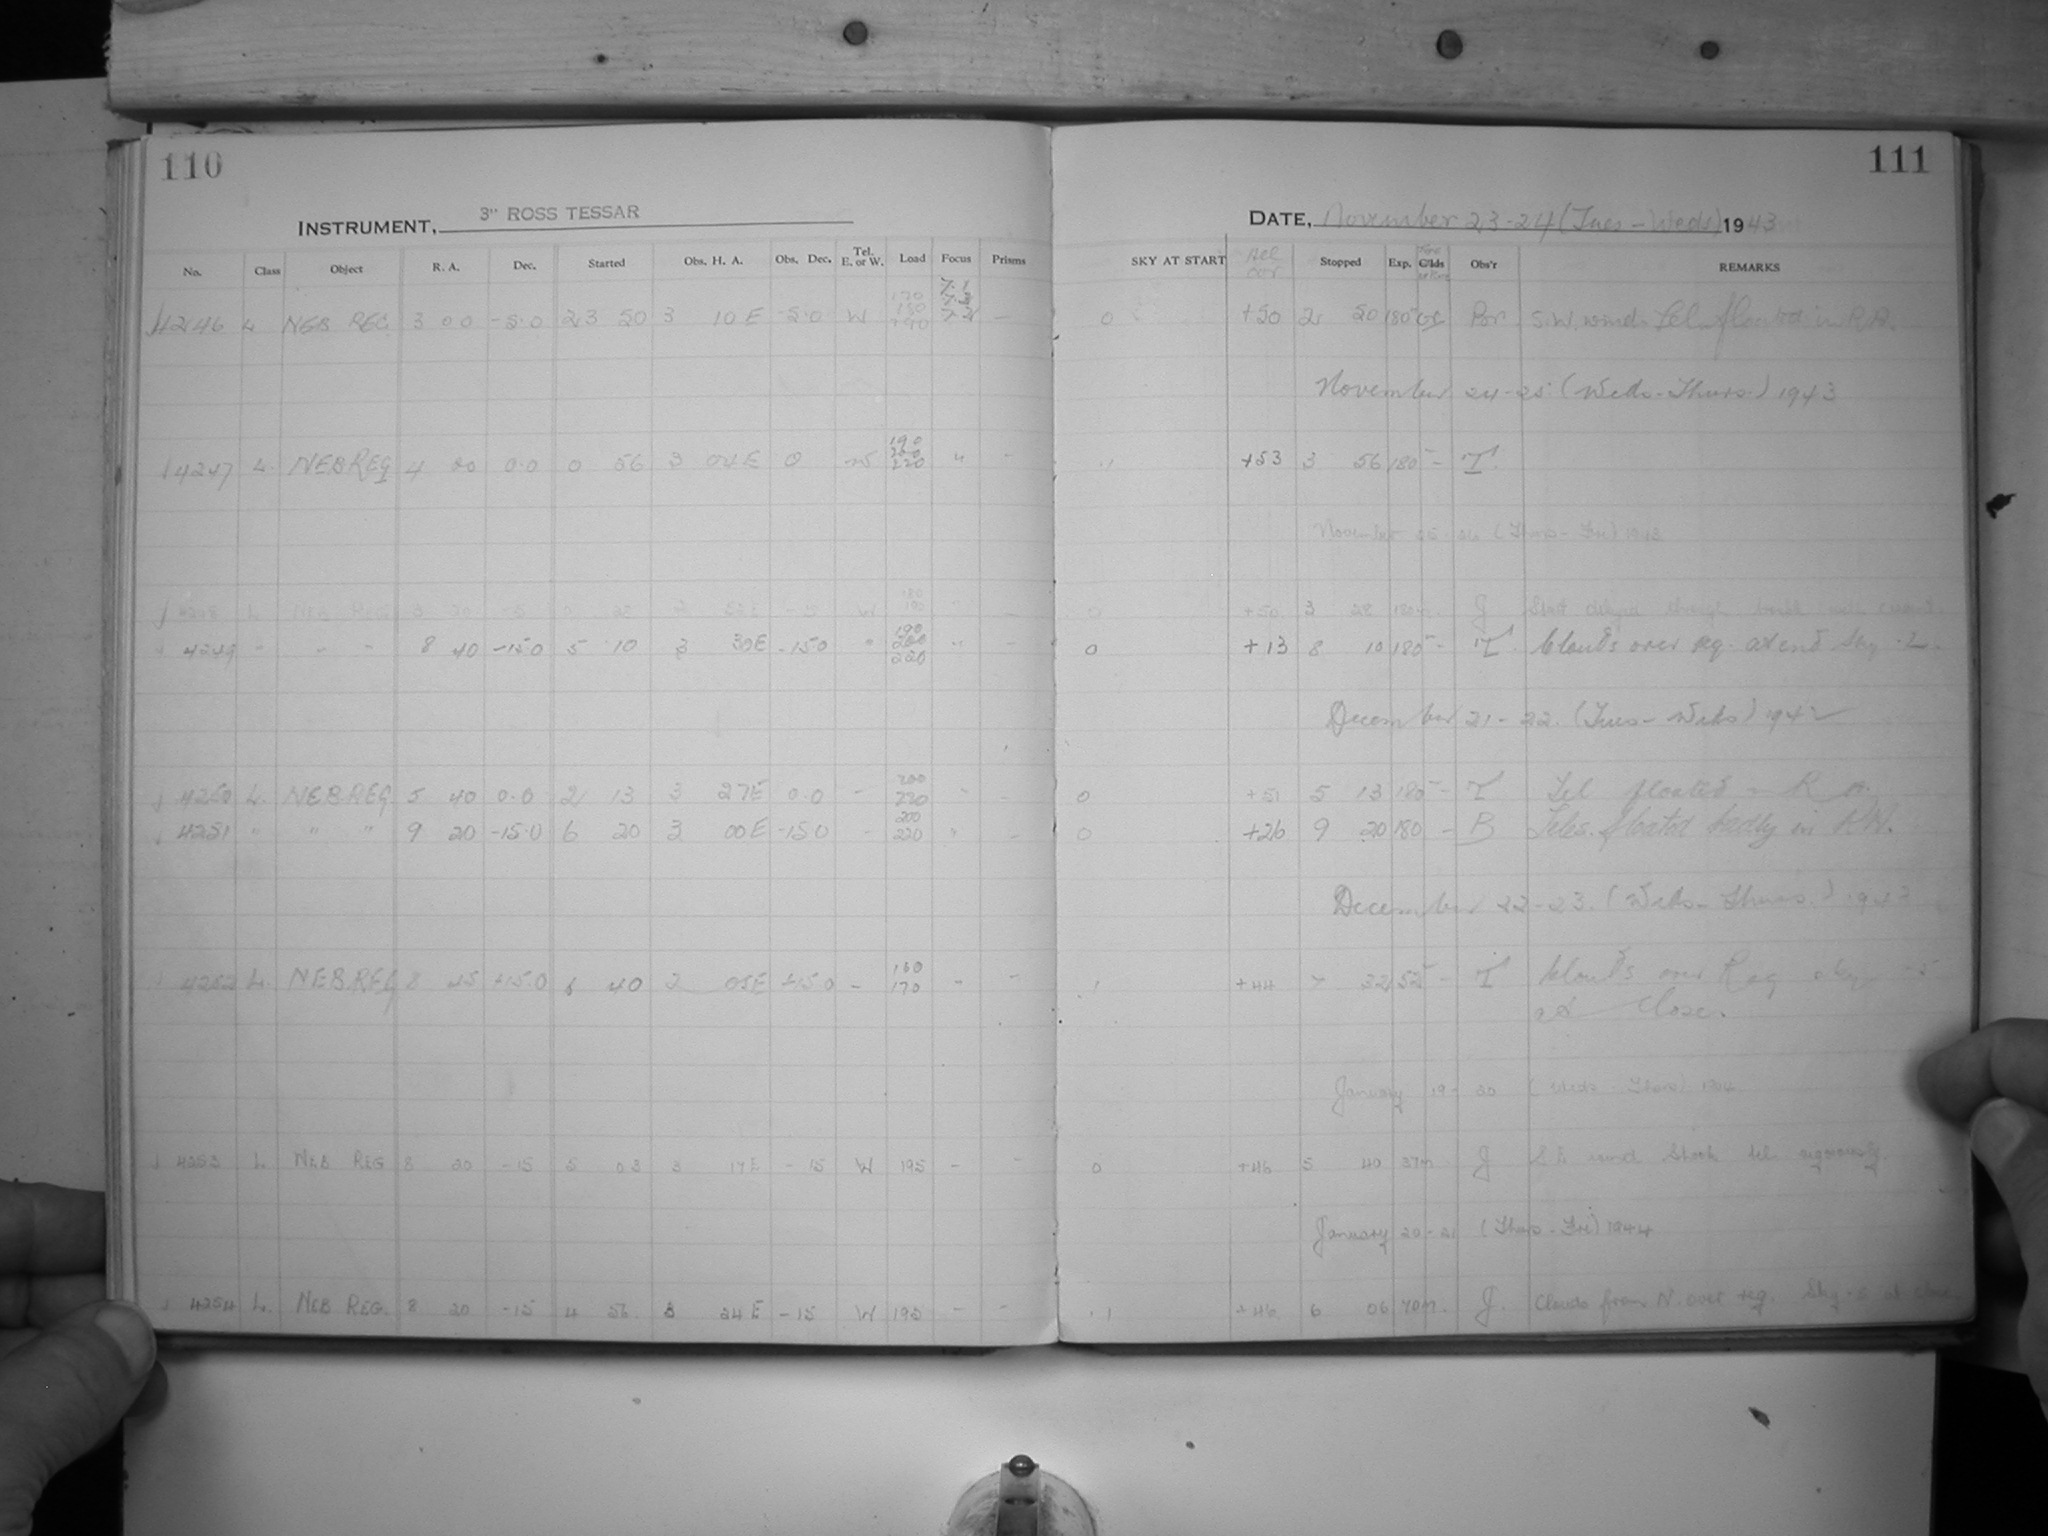 110
111
INSTRUMENT, 3" ROSS TESSAR
DATE, November 23-24 (Tues-Weds) 1943
No. Class Object R. A. Dec. Started Obs. H. A. Obs. Dec. Tel. E. or W. Load Focus Prisms SKY AT START Stopped Exp. Obs'r REMARKS
4246 L NEB REG 3 00 -5.0 23 50 3 10 E -5.0 W - 0 +50 2 20 180 S.W. winds Tel. floated in R.A.
November 24-25 (Weds-Thurs) 1943
4247 L. NEB REG 4 00 0.0 0 56 3 04 E 0 W 190 200 220 " - .1 +53 3 56 180 - T.
November 25-26 (Thurs-Fri) 1943
L NEB REG W - 0 +50 3 28 180m - J Start delayed through
4249 " " " 8 40 -15.0 5 10 3 30E -15.0 " 190 200 220 " - 0 +13 8 10 180 - T. Clouds over reg. at end Sky .2.
December 21-22. (Tues-Weds) 194
4250 L. NEB REG 5 40 0.0 2 13 3 27E 0.0 - 200 220 " - 0 +51 5 13 180 - T Tel floated in R.A.
4251 " " " 9 20 -15.0 6 20 3 00 E -15.0 - 200 220 " - 0 +26 9 20 180 - B Teles. floated badly in
December 22-23. (Weds-Thurs.) 1943
4252 L. NEB REG 8 45 +15.0 40 05E +15.0 - 160 170 " - .1 +44 7 32 52 - T Clouds over Reg sky
at Close.
January 19-20 (Weds-Thurs) 1944
4253 L. NEB REG 8 20 -15 5 03 3 17E -15 W 195 - - 0 +46 5 40 37m - J S E wind shook tel. vigorously
January 20-21 (Thurs-Fri) 1944
4254 L. NEB REG. 8 20 -15 4 56 3 24 E -15 W 195 - - .1 +46 6 06 70m. J. Clouds from N. over reg. Sky .5 at close